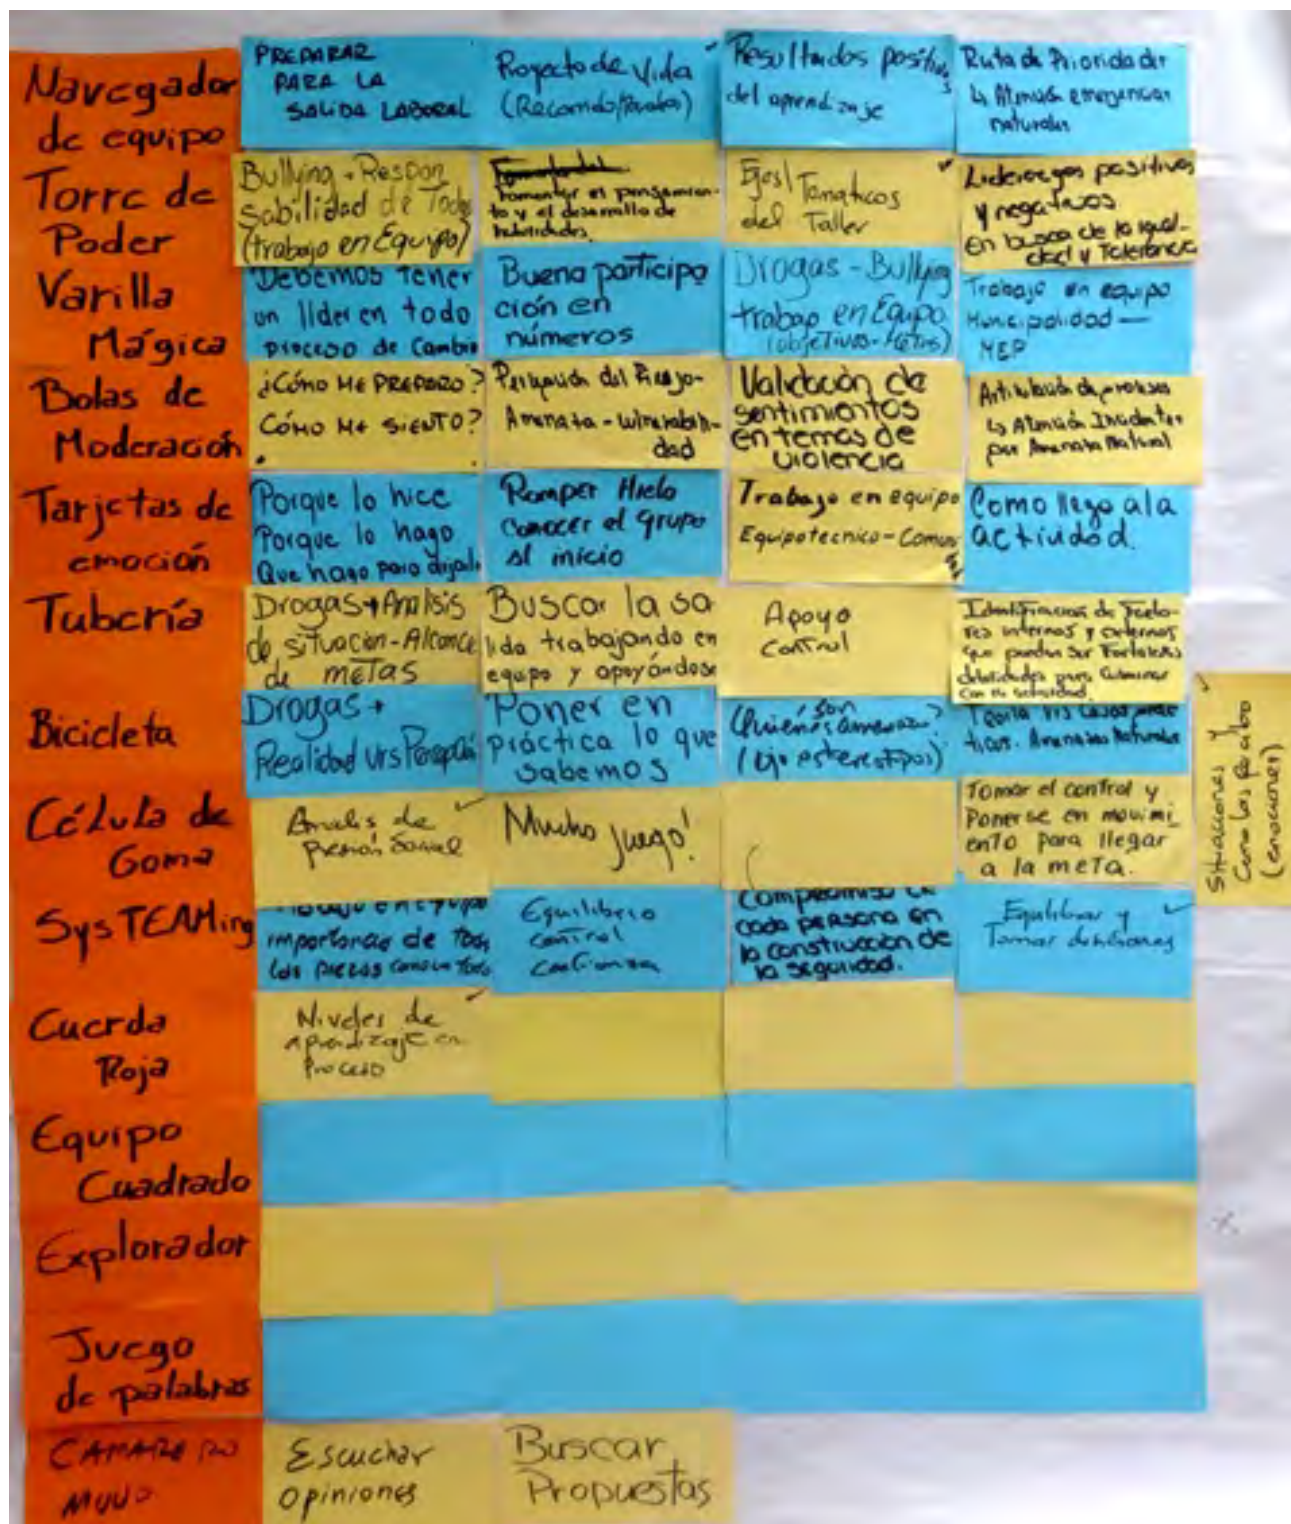 Navegador
de equipo
PREPARAR
PARA LA
SALIDA LABORAL
Proyecto de Vida
(Recorrido/
Resultados positivos
del aprendizaje
Ruta de Prioridades
↳ Atención emergencias
naturales
Torre de
Poder
Bullying + Respon
sabilidad de Todos
(trabajo en Equipo)
Fomentar el pensamien-
to y el desarrollo de
habilidades.
Ejes Tematicos
del Taller
Liderazgos positivos
y negativos.
En busca de la igual-
dad y Tolerancia
Varilla
Mágica
Debemos tener
un lider en todo
proceso de Cambio
Buena participa
ción en
números
Drogas - Bullying
trabajo en Equipo
(objetivos - Metas)
Trabajo en equipo
Municipalidad —
MEP
Bolas de
Moderación
¿Cómo ME PREPARO?
CÓMO ME SIENTO?
Percepción del Riesgo-
Amenaza - Vulnerabili-
dad
Validación de
sentimientos
en temas de
violencia
Articulación de procesos
↳ Atención Incidentes
por Amenaza Natural
Tarjetas de
emoción
Porque lo hice
Porque lo hago
Que hago para dejarlo
Romper Hielo
Conocer el grupo
al inicio
Trabajo en equipo
Equipo tecnico - Comunidad
Como llego a la
actividad.
Tubería
Drogas + Analisis
de situacion - Alcance
de metas
Buscar la sa
lida trabajando en
equipo y apoyándose
Apoyo
Control
Identificación de Facto-
res internos y externos
que puedan ser Fortalezas
debilidades para Culminar
con la actividad.
Bicicleta
Drogas +
Realidad vrs Percepción
Poner en
práctica lo que
sabemos
Quiénes son amenaza?
(ojo estereotipos)
Teoría vrs casos prác
ticos. Amenazas Naturales
Situaciones y
Como las percibo
(emociones)
Célula de
Goma
Analis de
Presión Social
Mucho juego!
Tomar el control y
Ponerse en movimi_
ento para llegar
a la meta.
SysTEAMing
Trabajo en equipo
importancia de Todas
las piezas
Equilibrio
control
confianza
Compromiso de
cada persona en
la construcción de
la seguridad.
Equilibrar y
Tomar decisiones
Cuerda
Roja
Niveles de
aprendizaje en
Proceso
Equipo
Cuadrado
Explorador
Juego
de palabras
CAMARERO
MUDO
Escuchar
Opiniones
Buscar
Propuestas